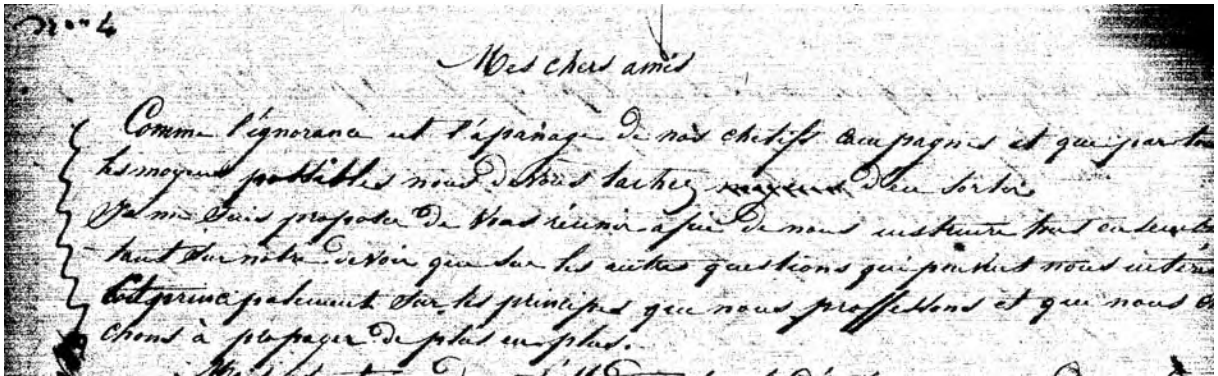 n° 4
Mes chers amis
Comme l'ignorance est l'apanage de nos chetifs campagnes et que par tou
les moyens possibles nous devons tacher d'en sortir
Je me suis proposer de vous réunir afin de nous instruire tous ensemble
tant sur notre devoir que sur les autres questions qui peuvent nous intére
Cest principalement sur les principes que nous proffessons et que nous
chons à propager de plus en plus.